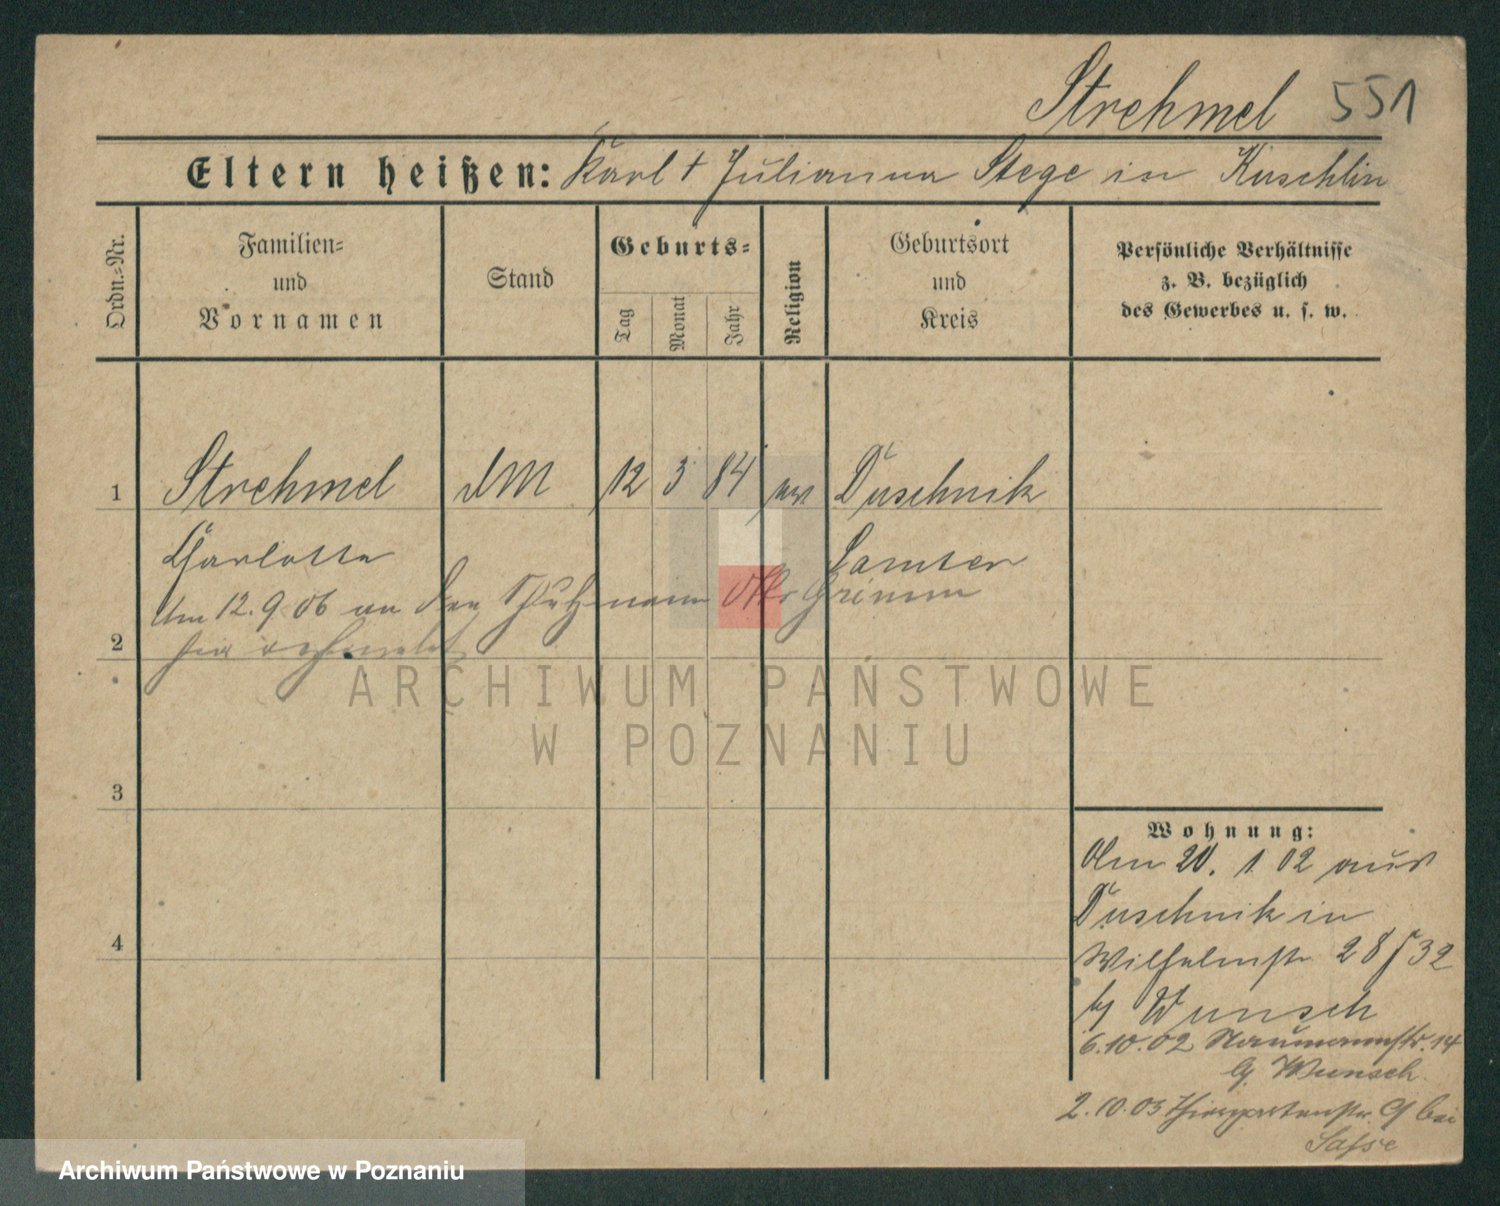 Strehmel 551
Eltern heißen: Karl + Julianna Stege in Kuschlin
Ordn.=Nr.
Familien=
und
Vornamen
Stand
Geburts=
Tag
Monat
Jahr
Religion
Geburtsort
und
Kreis
Persönliche Verhältnisse
z. B. bezüglich
des Gewerbes u. s. w.
1 Strehmel dM 12 3 84 ev Duschnik
Charlotte Samter
Am 12.9.06 an den Grimm
2 hier
ARCHIWUM PAŃSTWOWE
W POZNANIU
3
4
Wohnung:
Am 20. 1 02 aus
Duschnik in
Wilhelmstr 28 32
by Wunsch
6.10.02 Naumannstr. 14
Wunsch
2.10.03 Thiergartenstr. 9 bei
Sasse
Archiwum Państwowe w Poznaniu